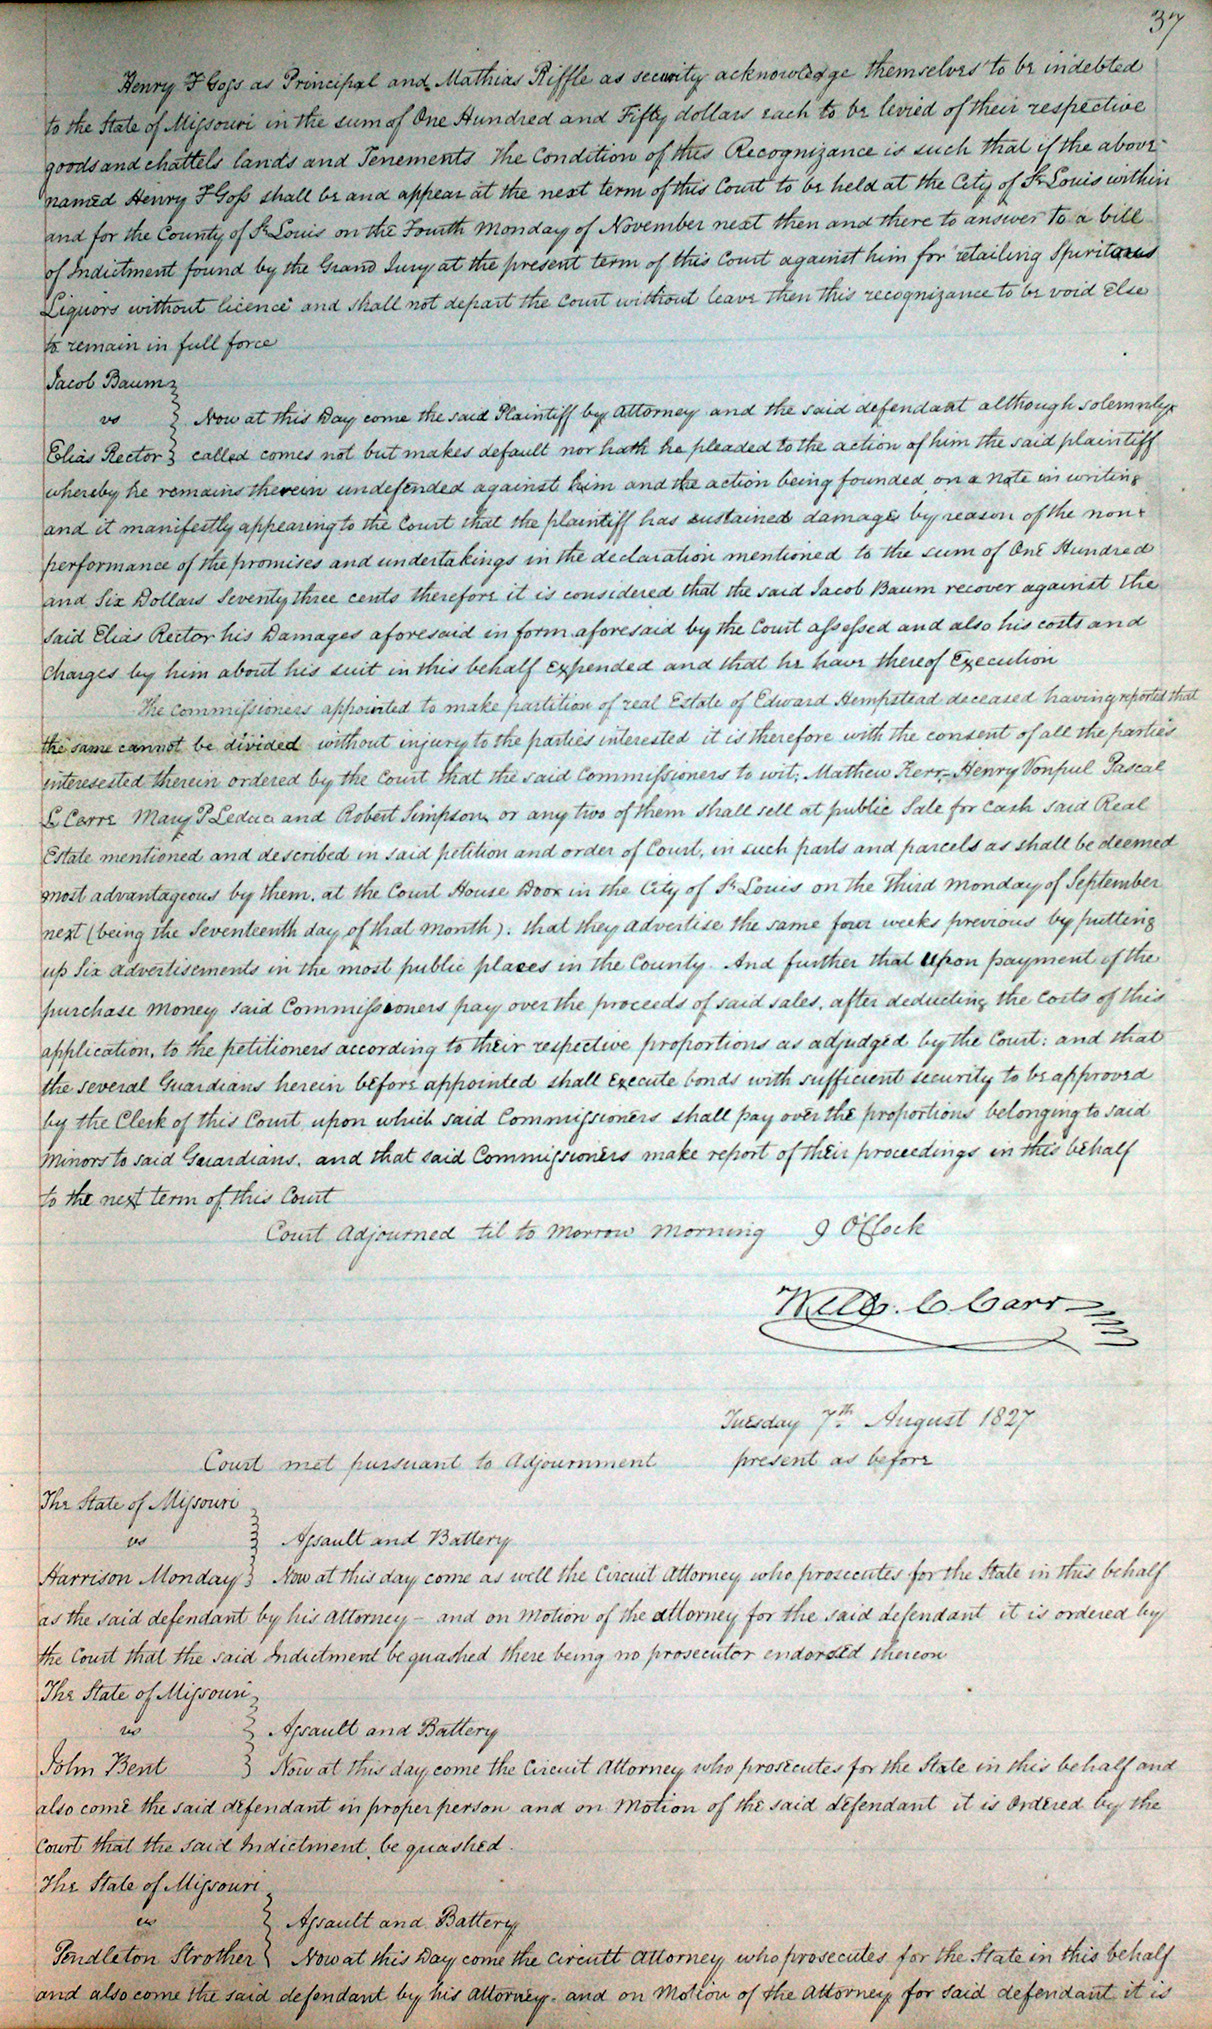 37
Henry F Goss as Principal and Mathias Riffle as security acknowledge themselves to be indebted
to the State of Missouri in the sum of One Hundred and Fifty dollars each to be levied of their respective
goods and chattels lands and Tenements The Condition of this Recognizance is such that if the above
named Henry F Goss shall be and appear at the next term of this Court to be held at the City of St Louis within
and for the County of St Louis on the Fourth Monday of November next then and there to answer to a bill
of Indictment found by the Grand Jury at the present term of this Court against him for retailing Spiritous
Liquors without licence and shall not depart the Court without leave then this recognizance to be void Else
to remain in full force
Jacob Baum
vs } Now at this Day come the said Plaintiff by Attorney and the said defendant although solemnly
Elias Rector } called comes not but makes default nor hath he pleaded to the action of him the said plaintiff
whereby he remains therein undefended against him and the action being founded on a Note in writing
and it manifestly appearing to the Court that the plaintiff has sustained damage by reason of the non
performance of the promises and undertakings in the declaration mentioned to the sum of One Hundred
and Six Dollars Seventy three cents therefore it is considered that the said Jacob Baum recover against the
said Elias Rector his Damages aforesaid in form aforesaid by the Court assessed and also his costs and
Charges by him about his suit in this behalf expended and that he have thereof Execution
The commissioners appointed to make partition of real Estate of Edward Hempstead deceased having reported that
the same cannot be divided without injury to the parties interested it is therefore with the consent of all the parties
interesested therein ordered by the Court that the said Commissioners to wit; Mathew Kerr, Henry Vonpul Pascal
L Cerre Mary P Leduc and Robert Simpson or any two of them shall sell at public Sale for cash said Real
Estate mentioned and described in said petition and order of Court, in such parts and parcels as shall be deemed
most advantageous by them. at the Court House Door in the City of St Louis on the Third Monday of September
next (being the Seventeenth day of that month). that they advertise the same four weeks previous by putting
up Six advertisements in the most public places in the County And further that upon payment of the
purchase Money said Commissioners pay over the proceeds of said sales, after deducting the costs of this
application, to the petitioners according to their respective proportions as adjudged by the Court; and that
the several Guardians herein before appointed shall Execute bonds with sufficient security to be approved
by the Clerk of this Court upon which said Commissioners shall pay over the proportions belonging to said
Minors to said Guardians. and that said Commissioners make report of their proceedings in this behalf
to the next term of this Court
Court Adjourned til to Morrow Morning 9 O'Clock
Will. C Carr
Tuesday 7th August 1827
Court met pursuant to Adjournment present as before
The State of Missouri
vs } Assault and Battery
Harrison Monday } Now at this day come as well the Circuit Attorney who prosecutes for the State in this behalf
as the said defendant by his Attorney - and on Motion of the attorney for the said defendant it is ordered by
the Court that the said Indictment be quashed there being no prosecutor endorsed thereon
The State of Missouri
vs } Assault and Battery
John Bent } Now at this day come the Circuit Attorney who prosecutes for the State in this behalf and
also come the said defendant in proper person and on Motion of the said defendant it is Ordered by the
Court that the said Indictment be quashed.
The State of Missouri
vs } Assault and Battery
Pendleton Strother } Now at this Day come the Circuit Attorney who prosecutes for the State in this behalf
and also come the said defendant by his Attorney. and on Motion of the Attorney for said defendant it is